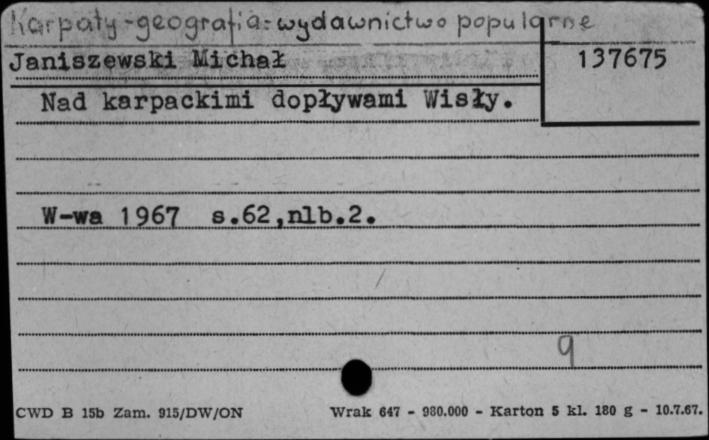 Karpaty-geografia-wydawnictwo popularne
Janiszewski Michał
137675
Nad karpackimi dopływami Wisły.
W-wa 1967 s.62,nlb.2.
9
CWD B 15b Zam. 915/DW/ON Wrak 647 - 980.000 - Karton 5 kl. 180 g - 10.7.67.